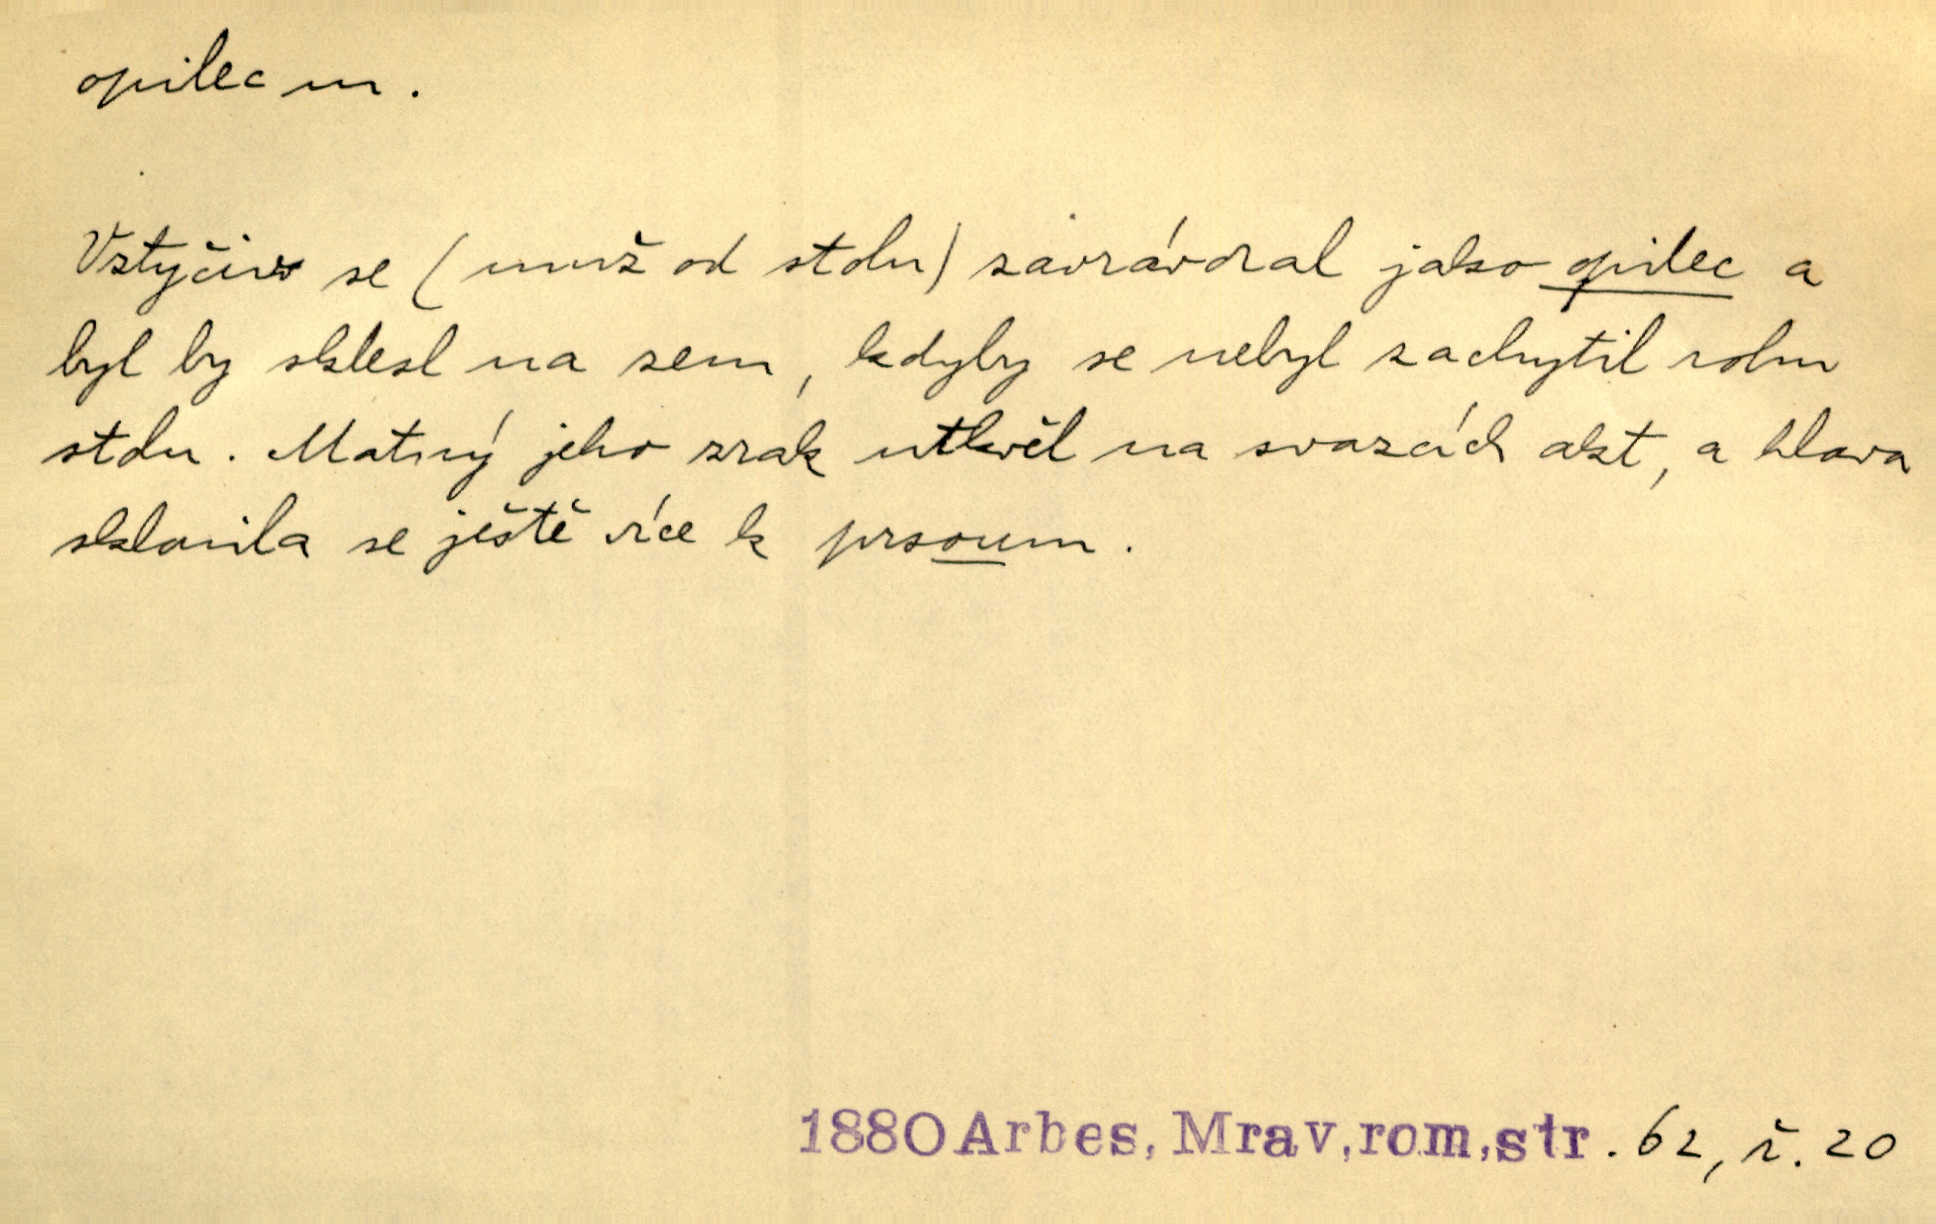 opilec m.
Vztyčiv se (muž od stolu) zavrávoral jako opilec a
byl by sklesl na zem, kdyby se nebyl zachytil rohu
stolu. Matný jeho zrak utkvěl na svazcích akt, a hlava
sklonila se ještě více k prsoum.
1880 Arbes, Mrav, rom, str. 62, ř. 20